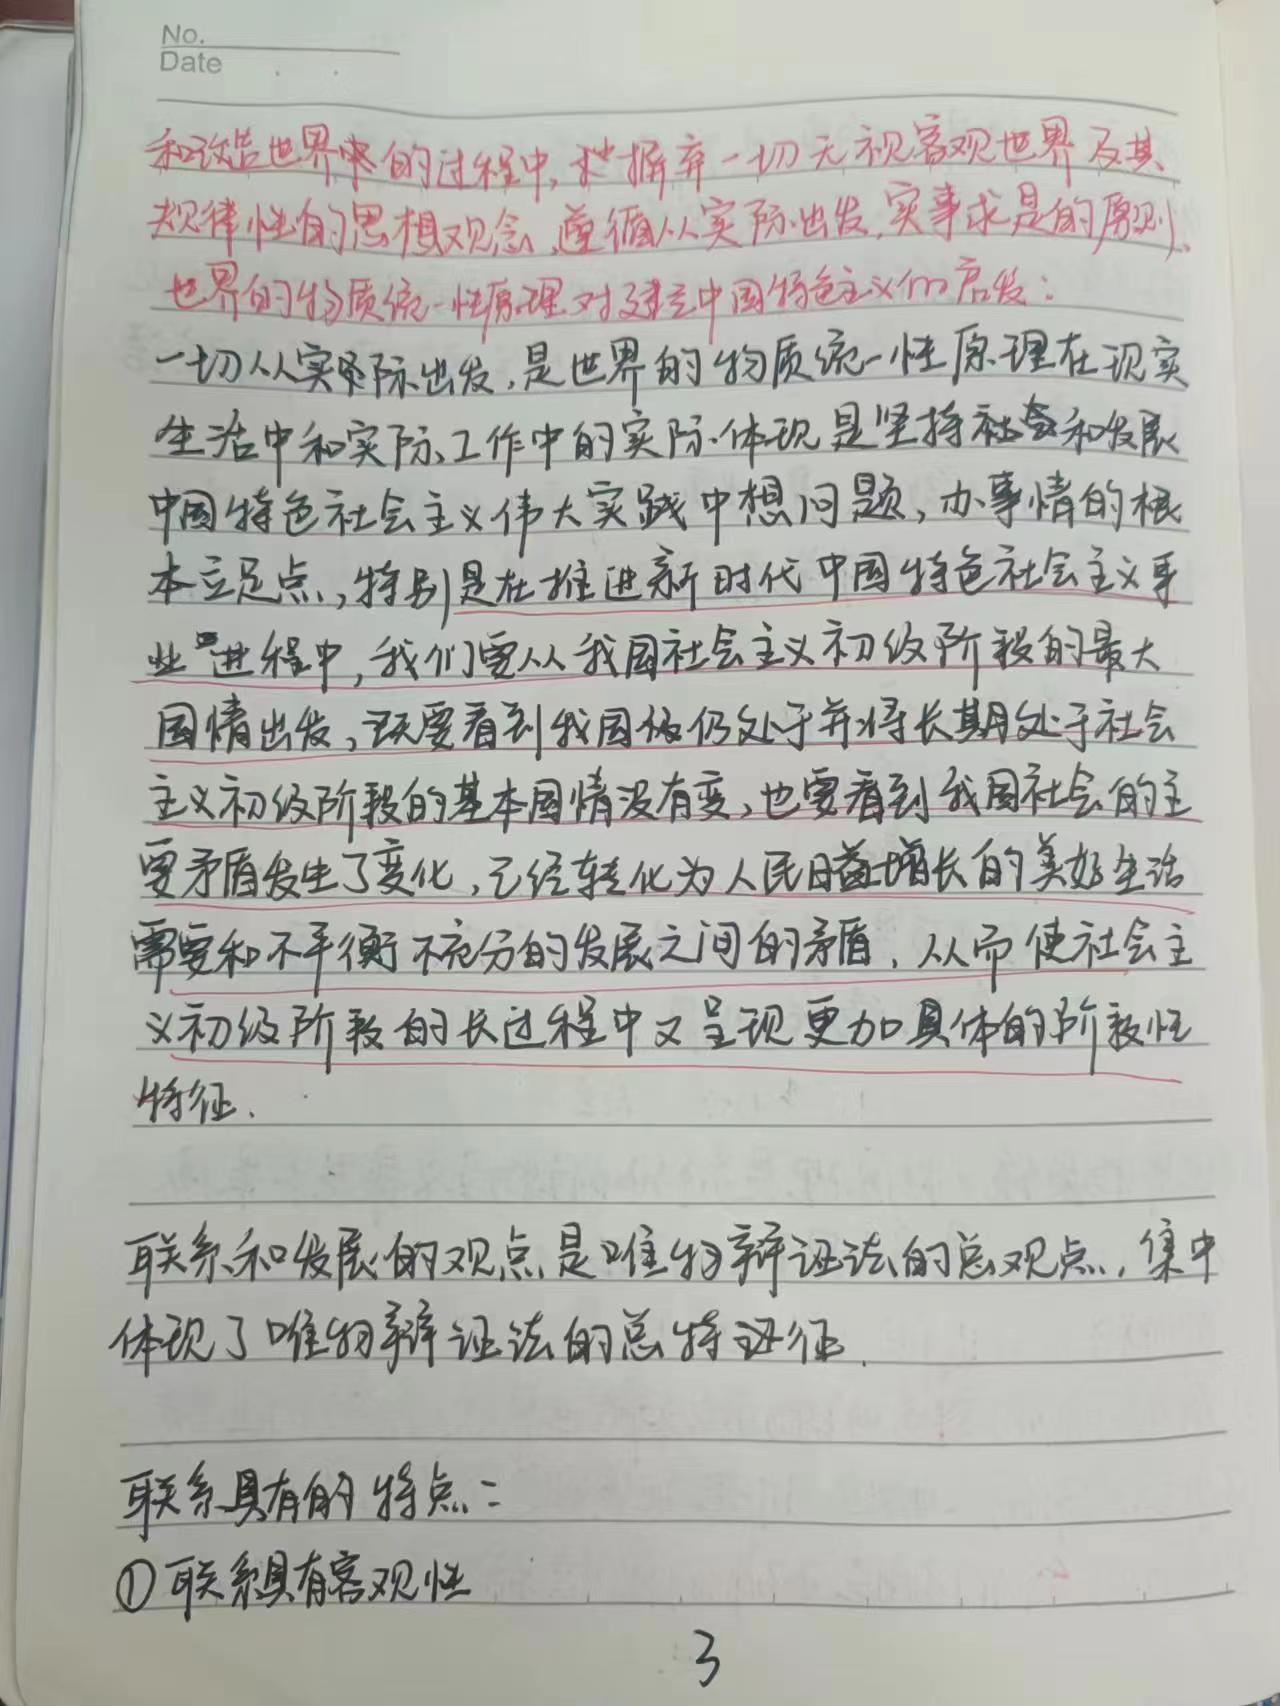 No.
Date
和改造世界的过程中,摒弃一切无视客观世界及其
规律性的思想观念,遵循从实际出发,实事求是的原则、
世界的物质统一性原理对建立中国特色主义的启发:
一切从实际出发,是世界的物质统一性原理在现实
生活中和实际工作中的实际体现是坚持社会和发展
中国特色社会主义伟大实践中想问题,办事情的根
本立足点,特别是在推进新时代中国特色社会主义事
业进程中,我们要从我国社会主义初级阶段的最大
国情出发,既要看到我国仍处于并将长期处于社会
主义初级阶段的基本国情没有变,也要看到我国社会的主
要矛盾发生了变化,已经转化为人民日益增长的美好生活
需要和不平衡不充分的发展之间的矛盾,从而使社会主
义初级阶段的长过程中又呈现更加具体的阶段性
特征.
联系和发展的观点是唯物辩证法的总观点,集中
体现了唯物辩证法的总特征.
联系具有的特点:
①联系具有客观性
3